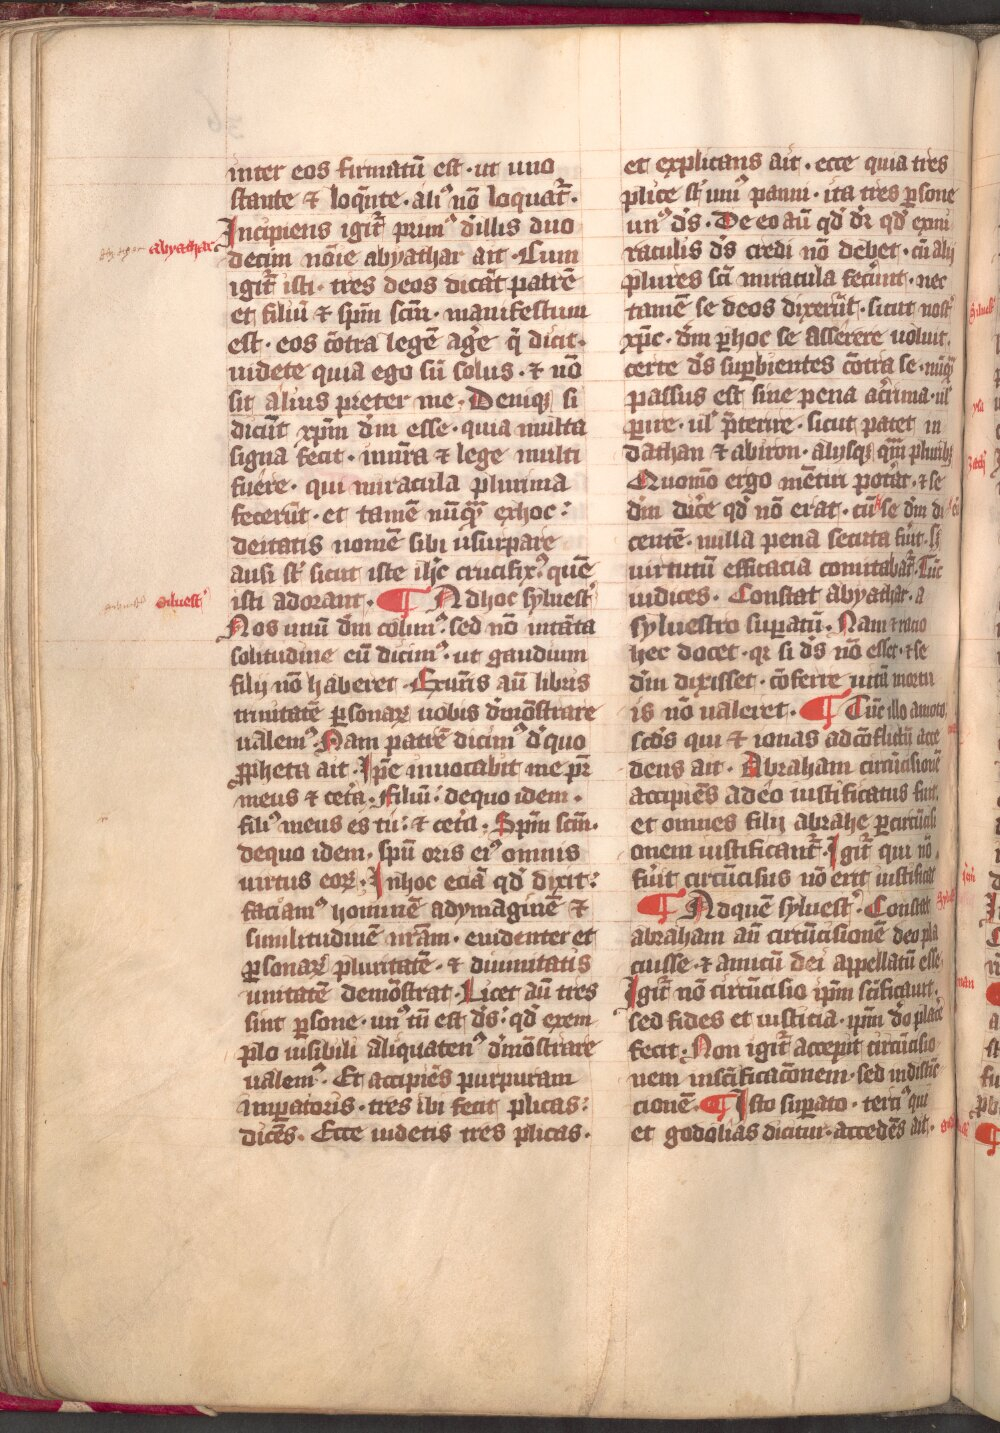 inter eos firmatū est · ut uno
stante ⁊ loq̄nte · aliꝰ nō loquat᷒ ·
Incipiens igit᷒ primꝰ d'illis duo
abyathar
decim nōīe abyathar ait · Cum
igit᷒ isti · tres deos dicāt patrē
et filiū ⁊ sp̄m scm̄ · manifestum
est · eos cōtra legē age᷒ q̄ dicit ·
uidete quia ego sū solus · ⁊ nō
sit alius preter me · Deniqꝫ si
dicūt xp̄m dm̄ esse · quia multa
signa fecit · in nr̄a ⁊ lege multi
fuere · qui miracula plurima
fecerūt · et tamē nūqꝫ exhoc :
deitatis nomē sibi usurpare
ausi st᷒ sicut iste ih̄c crucifixꝰ quē
siluest᷒
isti adorant · ¶ Adhoc syluest᷒
Nos unū dm̄ colimꝰ · sed nō intāta
solitudine eū dicimꝰ · ut gaudium
filij nō haberet · Exuris̄ aū libris
trinitatē ꝑsonaꝝ uobis d'mōstrare
ualemꝰ · Nam patrē dicimꝰ d'quo
ꝓpheta ait · Ip̄e inuocabit me pr̄
meus ⁊ cet'a · filiū : dequo idem ·
filiꝰ meus es tu : ⁊ cet'a · Sp̄m scm̄ ·
dequo idem · spū oris eiꝰ omnis
uirtus eoꝝ · Inhoc eciā qd̄ dixit :
faciamꝰ hominē adymaginē ⁊
similitudinē nr̄am · euidenter et
ꝑsonaꝝ pluritatē · ⁊ diuinitatis
unitatē demōstrat · Licet aū tres
sint ꝑsone · unꝰ tn̄ est ds̄ : qd̄ exem
plo uisibili aliquatenꝰ d'mōstrare
ualemꝰ · Et accipiēs purpuram
imꝑatoris · tres ibi fecit plicas :
dicēs · Ecce uidetis tres plicas ·
et explicans ait · ecce quia tres
plice st᷒ uniꝰ panni · ita tres ꝑsone
unꝰ ds̄ · De eo aū qd̄ dr̄ qd̄ exmi
raculis ds̄ credi nō debet · cū alij
plures scī miracula fecerīnt · nec
tamē se deos dixerūt · sicut nost᷒
xp̄c · dm̄ ꝑhoc se asserere uoluit ·
certe ds̄ suꝑbientes cōtra se · nūqꝫ
passus est sine pena ac'rima · ul'
ꝑire · ul' p̄terire · sicut patet in
dathan ⁊ abiron · alijsqꝫ qm̄ pluribꝫ
Quomō ergo mētiri potat᷒ · ⁊ se
dm̄ dice᷒ qd̄ nō erat · cū se dm̄ di
centē · nulla pena secuta fūit · s;
uirtutū efficacia comitabat᷒ · Tūc
iudices · Constat abyathar · a
syluestro suꝑatū · Nam ⁊ racio
hec docet · qr si ds̄ nō esset · ⁊ se
dm̄ dixisset · cōferre uitā mortu
is nō ualeret · ¶ Tūc illo amoto
scd̄s qui ⁊ ionas adcōflictū acce
dens ait · Abraham circūcisionē
accipiēs adeo iustificatus fuit ·
et omnes filij abrahe ꝑcircūcisi
onem iustificant᷒ · Igit᷒ qui nō
fūit circūcisus nō erit iustificat᷒
¶ Adquē syluest᷒ · Constat
abraham an̄ circūcisionē deo pla
cuisse · ⁊ amicū dei appellatū esse
Igit᷒ nō circūcisio ip̄m scīficauit ·
sed fides et iusticia · ip̄m d'o place᷒
fecit · Non igit᷒ accepit circūcisio
nem inscīficacōnem · sed indistīc
cionē · ¶ Isto suꝑato · terciꝰ qui
et godolias dicitur · accedēs ait ·